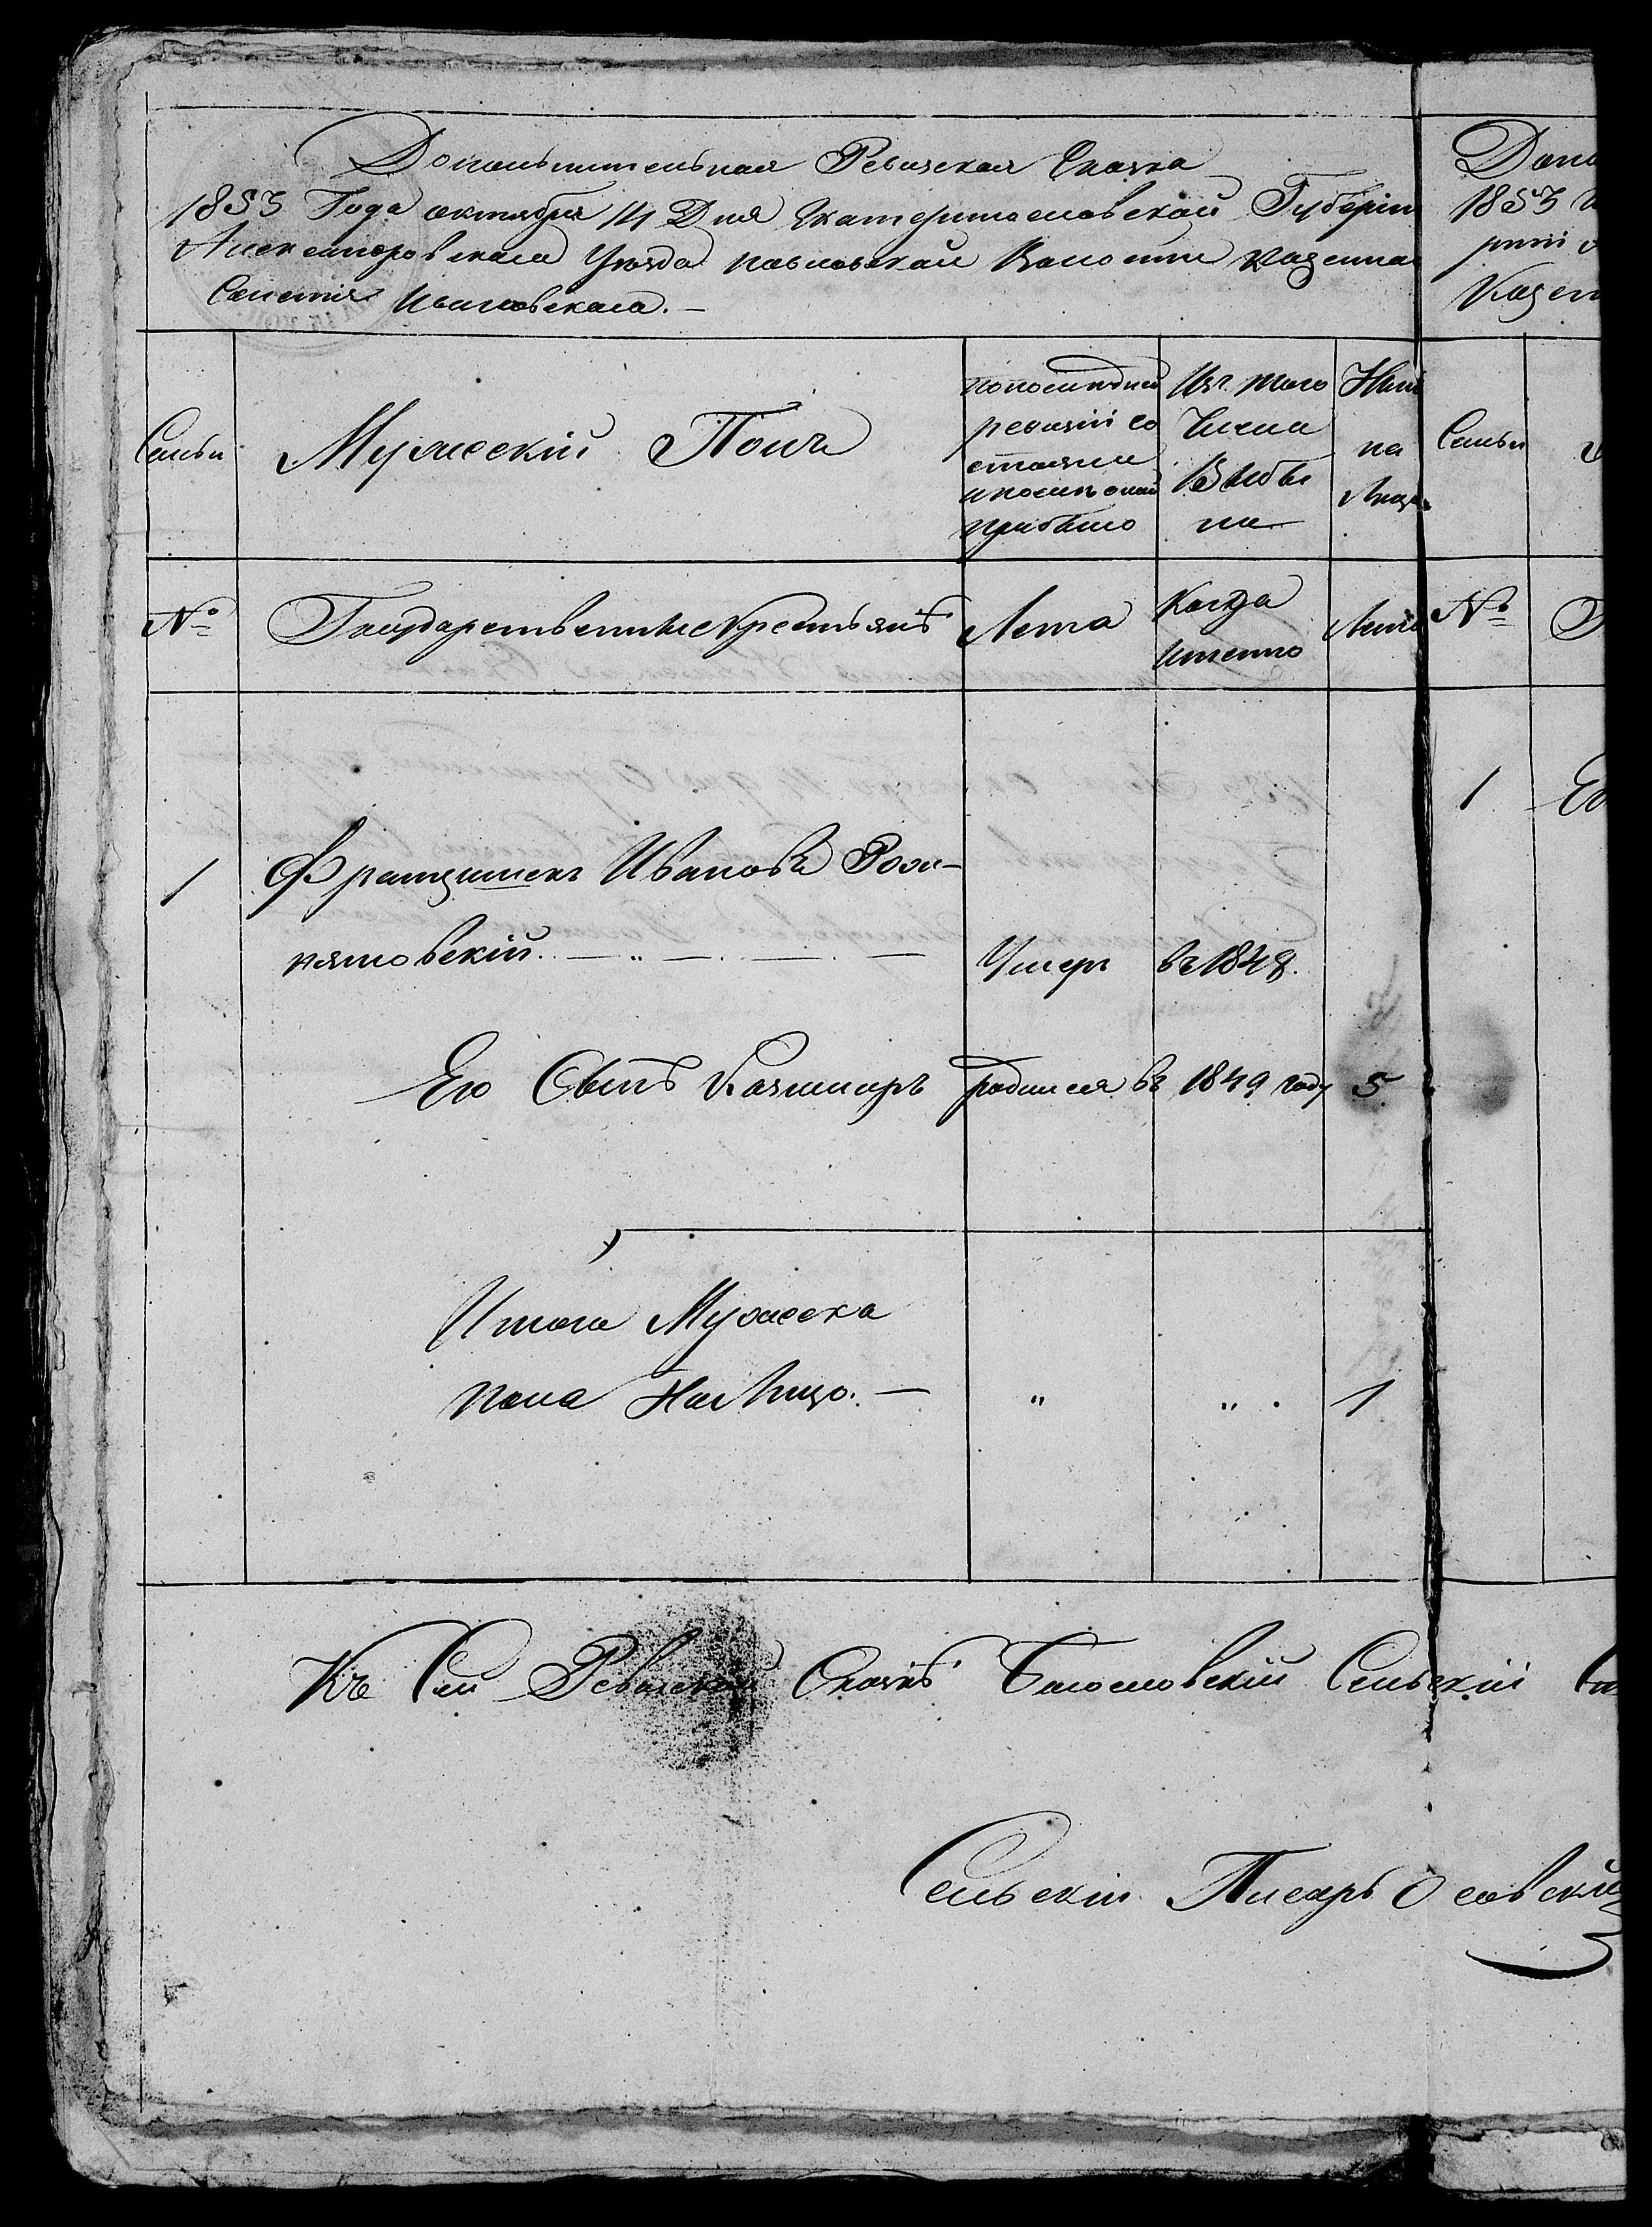 Дополнительная Ревизская Сказка
1853 Года октября 14 Дня Екатеринославской Губерніи
Александровскаго Уезда павловской Волости казенна
Селенія Ивановскаго. —
Семьи
Мужескій Полъ
по последней
ревизіи со
стояло
и после оной
прибыло
Изъ того
Числа
Выбы
ло
Ныне
на
Лицо
№
Государственные крестьянъ
Лета
Когда
именно
Лета
1
Францишекъ Ивановъ Рози-
нятовскій. — „ — . — . —
Умеръ
въ 1848.
Его Сынъ Казимиръ
родился въ 1849 году
5
Итого Мужеска
пола На Лицо. —
„
„ .
1
Къ Сей Ревизской Сказкѣ Сельскій
Сельскій Писарь Осовскій
1853
Казен
Семьи
№
1